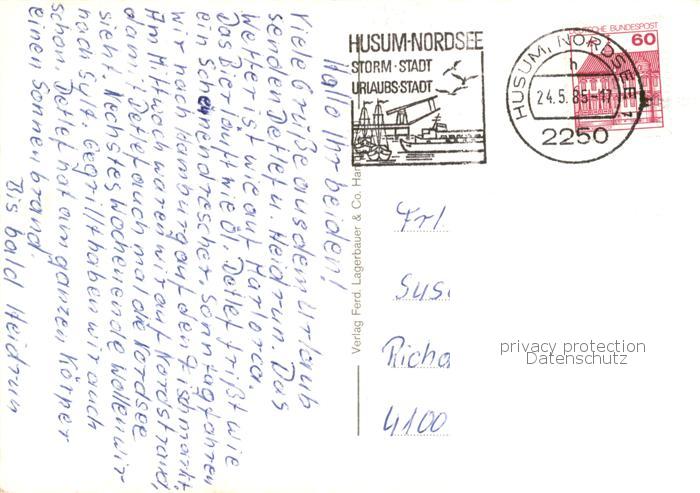 Hallo Ihr beiden!
Viele Grüße aus dem Urlaub
senden Detlef u. Heidrun. Das
Wetter ist wie auf Mallorca.
Das Bier läuft wie Öl. Detlef frißt wie
ein Scheunendrescher. Sonntag fahren
wir nach Hamburg auf den Fischmarkt.
Am Mittwoch waren wir auf Nordstrand,
damit Detlef auch mal die Nordsee
sieht. Nechstes Wochenende wollen wir
nach Sylt. Gegrillt haben wir auch
schon. Detlef hat am ganzen Körper
einen Sonnenbrand.
Bis bald Heidrun
Verlag Ferd. Lagerbauer & Co. Ham
HUSUM-NORDSEE
STORM-STADT
URLAUBS-STADT
HUSUM, NORDSEE 1
h
24.5.85-17
2250
DEUTSCHE BUNDESPOST
60
Frl.
Susi
Richa
4100
privacy protection
Datenschutz